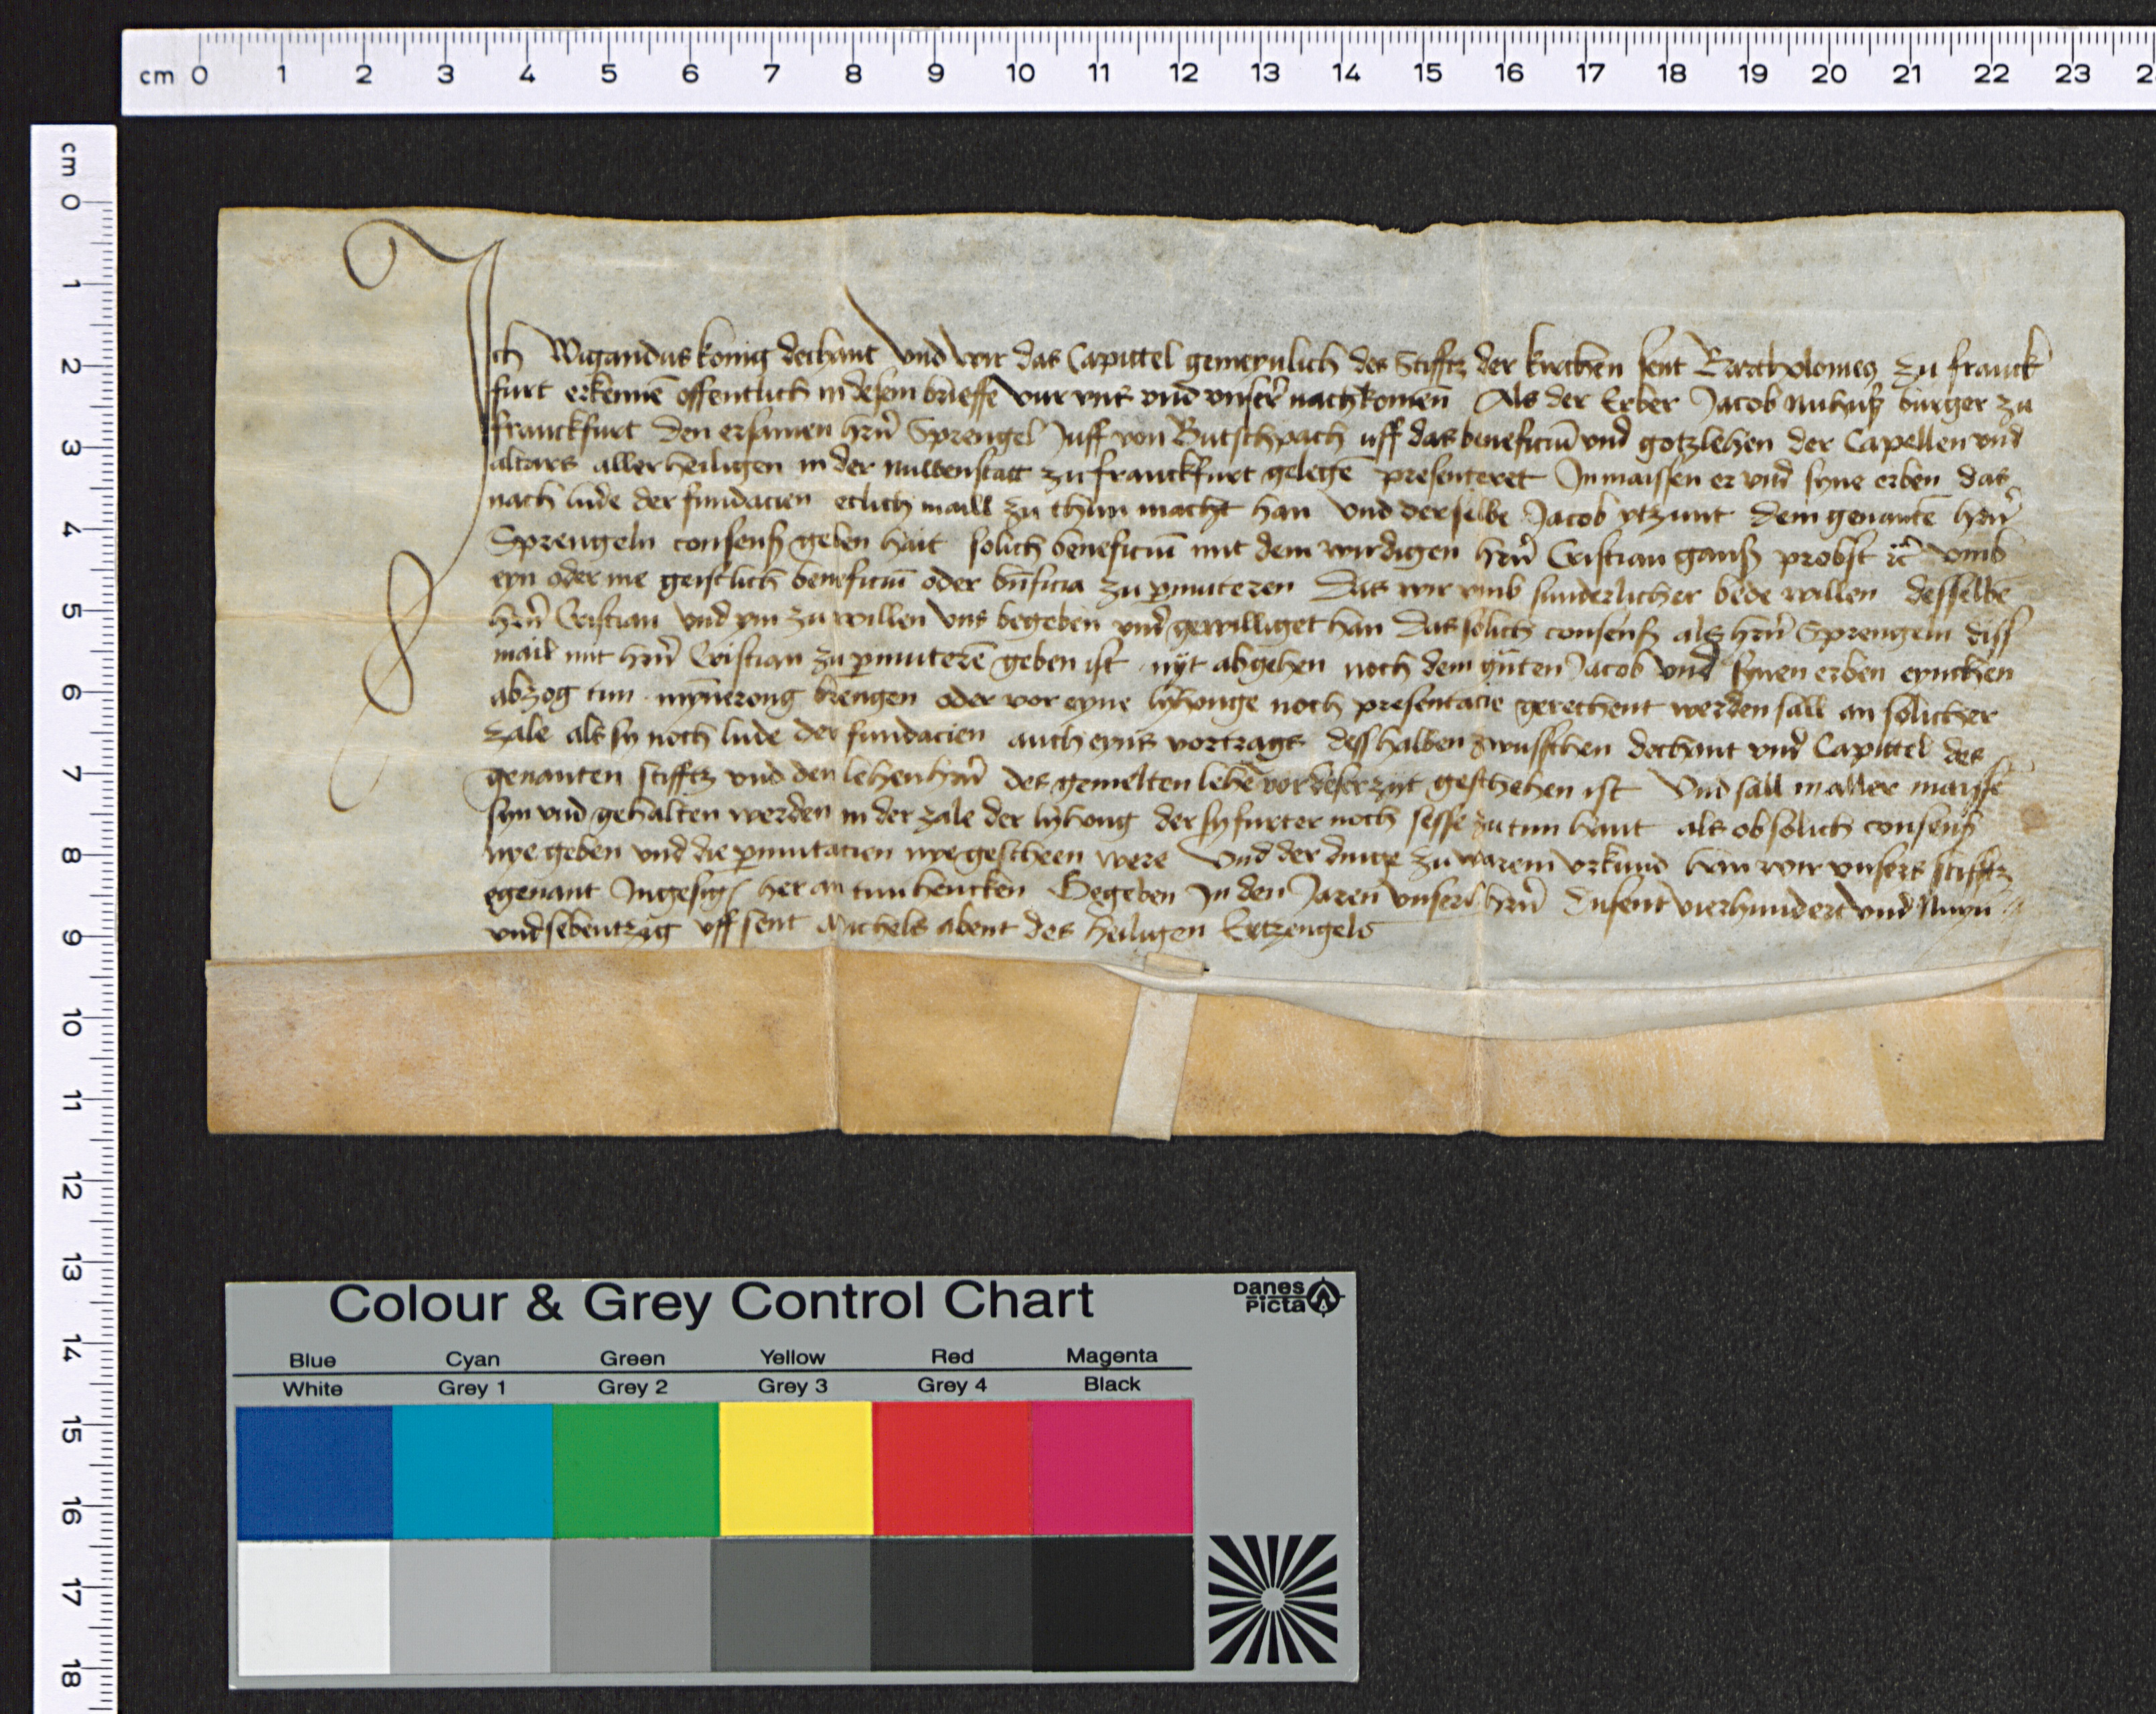 cm 0 1 2 3 4 5 6 7 8 9 10 11 12 13 14 15 16 17 18 19 20 21 22 23 2
cm 0 1 2 3 4 5 6 7 8 9 10 11 12 13 14 15 16 17 18
Ich Wigandus konig dechant Vnd wir das Capittel gemeynlich des Stifftz der kirchen sent Bartholomeg zu franck
furt erkennē offentlich in desem brieffe vur vns vnd vnser nachkomen Als der Erber Jacob nuhuß burger zu
franckfurt den ersamen hrn̄ Sprengel Juff von Butschpach uff das beneficiū vnd gotzlehen der Capellen vnd
altars aller heiligen in der nuwenstatt zu franckfurt gelegē presenteret Inmaissen er vnd syne erben das
nach lude der fundacien etlich maill zu thun macht han vnd derselbe Jacob ytzunt dem genantē hrn̄
Sprengeln consenß geben hait solich beneficiū mit dem wirdigen hrn̄ Cristian ganß probst rc̄ vmb
eyn oder me geistlich beneficiū oder bn̄ficia zu ꝑmuteren Das wir vmb sunderlicher bede willen desselbē
hrn̄ Cristian vnd ym zu willen vns begeben vnd gewilliget han Das solich consenß als hrn̄ Sprengeln diss
mail mit hrn̄ Cristian zu ꝑmuterē geben ist nyt abgehen noch dem gn̄ten Jacob vnd synen erben eynchen
abzog tun mynerong brengen oder vor eyne lyhonge noch presentacie gerechent werden sall an solicher
zale als sy noch lude der fundacien auch eyns vortrags desshalben zwusschen dechant vnd Capittel des
genanten stifftz vnd den lehenhrn̄ des gemelten lehē vor deser zyt geschehen ist Vnd sall in aller maisse
syn vnd gehalten werden in der zale der lyhong der sy furter noch sesse zu tun hant als ob solich consenß
nye geben vnd die ꝑmutacien nye gescheen were Vnd der dinge zu warem vrkund han wir vnsers stifftz
egenant Ingesigel her an tun hencken Gegeben In den Jaren vnsers hrn̄ Dusent vierhundert vnd Nuyn
vnd sebentzig vff sent Michels abent des heiligen Ertzengels
Colour & Grey Control Chart
Danes
Picta
Blue Cyan Green Yellow Red Magenta
White Grey 1 Grey 2 Grey 3 Grey 4 Black